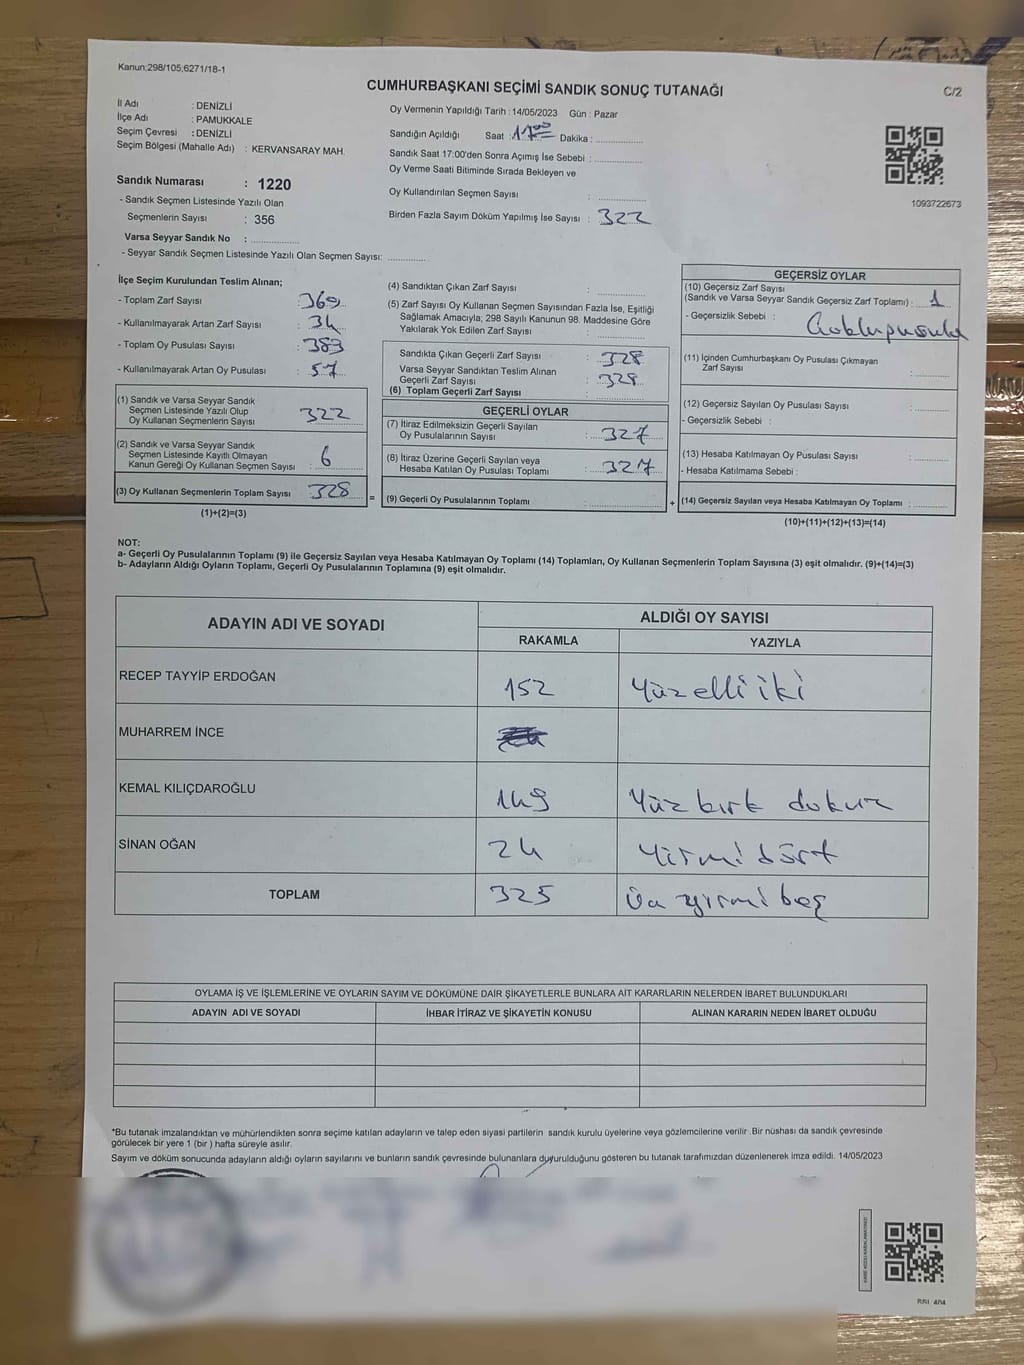 Kanun;298/105;6271/18-1
CUMHURBAŞKANI SEÇİMİ SANDIK SONUÇ TUTANAĞI
C/2
İl Adı : DENİZLİ
İlçe Adı : PAMUKKALE
Seçim Çevresi : DENİZLİ
Seçim Bölgesi (Mahalle Adı) : KERVANSARAY MAH.
Sandık Numarası : 1220
- Sandık Seçmen Listesinde Yazılı Olan
Seçmenlerin Sayısı : 356
Varsa Seyyar Sandık No :
- Seyyar Sandık Seçmen Listesinde Yazılı Olan Seçmen Sayısı:
Oy Vermenin Yapıldığı Tarih : 14/05/2023 Gün : Pazar
Sandığın Açıldığı Saat : 17:00 Dakika :
Sandık Saat 17:00'den Sonra Açımış İse Sebebi :
Oy Verme Saati Bitiminde Sırada Bekleyen ve
Oy Kullandırılan Seçmen Sayısı :
Birden Fazla Sayım Döküm Yapılmış İse Sayısı : 322
1093722673
İlçe Seçim Kurulundan Teslim Alınan;
- Toplam Zarf Sayısı : 369
- Kullanılmayarak Artan Zarf Sayısı : 34
- Toplam Oy Pusulası Sayısı : 383
- Kullanılmayarak Artan Oy Pusulası : 57
(1) Sandık ve Varsa Seyyar Sandık
Seçmen Listesinde Yazılı Olup
Oy Kullanan Seçmenlerin Sayısı : 322
(2) Sandık ve Varsa Seyyar Sandık
Seçmen Listesinde Kayıtlı Olmayan
Kanun Gereği Oy Kullanan Seçmen Sayısı : 6
(3) Oy Kullanan Seçmenlerin Toplam Sayısı : 328
(1)+(2)=(3)
(4) Sandıktan Çıkan Zarf Sayısı :
(5) Zarf Sayısı Oy Kullanan Seçmen Sayısından Fazla İse, Eşitliği
Sağlamak Amacıyla; 298 Sayılı Kanunun 98. Maddesine Göre
Yakılarak Yok Edilen Zarf Sayısı :
Sandıkta Çıkan Geçerli Zarf Sayısı : 328
Varsa Seyyar Sandıktan Teslim Alınan
Geçerli Zarf Sayısı : 328
(6) Toplam Geçerli Zarf Sayısı :
GEÇERLİ OYLAR
(7) İtiraz Edilmeksizin Geçerli Sayılan
Oy Pusulalarının Sayısı : 327
(8) İtiraz Üzerine Geçerli Sayılan veya
Hesaba Katılan Oy Pusulası Toplamı : 327
= (9) Geçerli Oy Pusulalarının Toplamı :
GEÇERSİZ OYLAR
(10) Geçersiz Zarf Sayısı
(Sandık ve Varsa Seyyar Sandık Geçersiz Zarf Toplamı) : 1
- Geçersizlik Sebebi :
(11) İçinden Cumhurbaşkanı Oy Pusulası Çıkmayan
Zarf Sayısı :
(12) Geçersiz Sayılan Oy Pusulası Sayısı :
- Geçersizlik Sebebi :
(13) Hesaba Katılmayan Oy Pusulası Sayısı :
- Hesaba Katılmama Sebebi :
+ (14) Geçersiz Sayılan veya Hesaba Katılmayan Oy Toplamı :
(10)+(11)+(12)+(13)=(14)
NOT:
a- Geçerli Oy Pusulalarının Toplamı (9) ile Geçersiz Sayılan veya Hesaba Katılmayan Oy Toplamı (14) Toplamları, Oy Kullanan Seçmenlerin Toplam Sayısına (3) eşit olmalıdır. (9)+(14)=(3)
b- Adayların Aldığı Oyların Toplamı, Geçerli Oy Pusulalarının Toplamına (9) eşit olmalıdır.
ADAYIN ADI VE SOYADI ALDIĞI OY SAYISI
RAKAMLA YAZIYLA
RECEP TAYYİP ERDOĞAN 152 Yüz elli iki
MUHARREM İNCE
KEMAL KILIÇDAROĞLU 149 Yüz kırk dokuz
SİNAN OĞAN 24 Yirmi dört
TOPLAM 325 Üç yirmi beş
OYLAMA İŞ VE İŞLEMLERİNE VE OYLARIN SAYIM VE DÖKÜMÜNE DAİR ŞİKAYETLERLE BUNLARA AİT KARARLARIN NELERDEN İBARET BULUNDUKLARI
ADAYIN ADI VE SOYADI İHBAR İTİRAZ VE ŞİKAYETİN KONUSU ALINAN KARARIN NEDEN İBARET OLDUĞU
*Bu tutanak imzalandıktan ve mühürlendikten sonra seçime katılan adayların ve talep eden siyasi partilerin sandık kurulu üyelerine veya gözlemcilerine verilir .Bir nüshası da sandık çevresinde
görülecek bir yere 1 (bir ) hafta süreyle asılır.
Sayım ve döküm sonucunda adayların aldığı oyların sayılarını ve bunların sandık çevresinde bulunanlara duyurulduğunu gösteren bu tutanak tarafımızdan düzenlenerek imza edildi. 14/05/2023